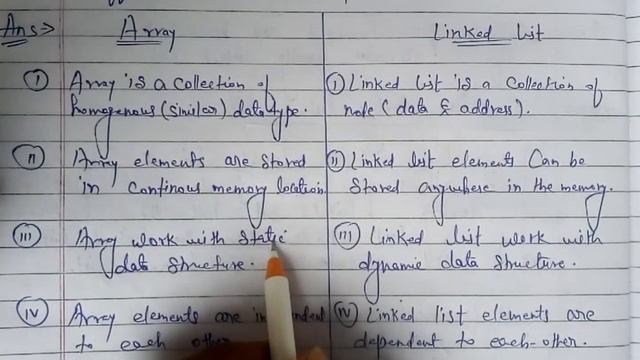 Ans⇒ Array
(i) Array is a collection of
homogenous (similar) data type.
(ii) Array elements are stored
in continous memory location
(iii) Array work with static
data structure.
(iv) Array elements are
to each other
Linked list
(i) Linked list is a collection of
node (data & address).
(ii) Linked list elements can be
stored anywhere in the memory.
(iii) Linked list work with
dynamic data structure.
(iv) Linked list elements are
dependent to each-other.